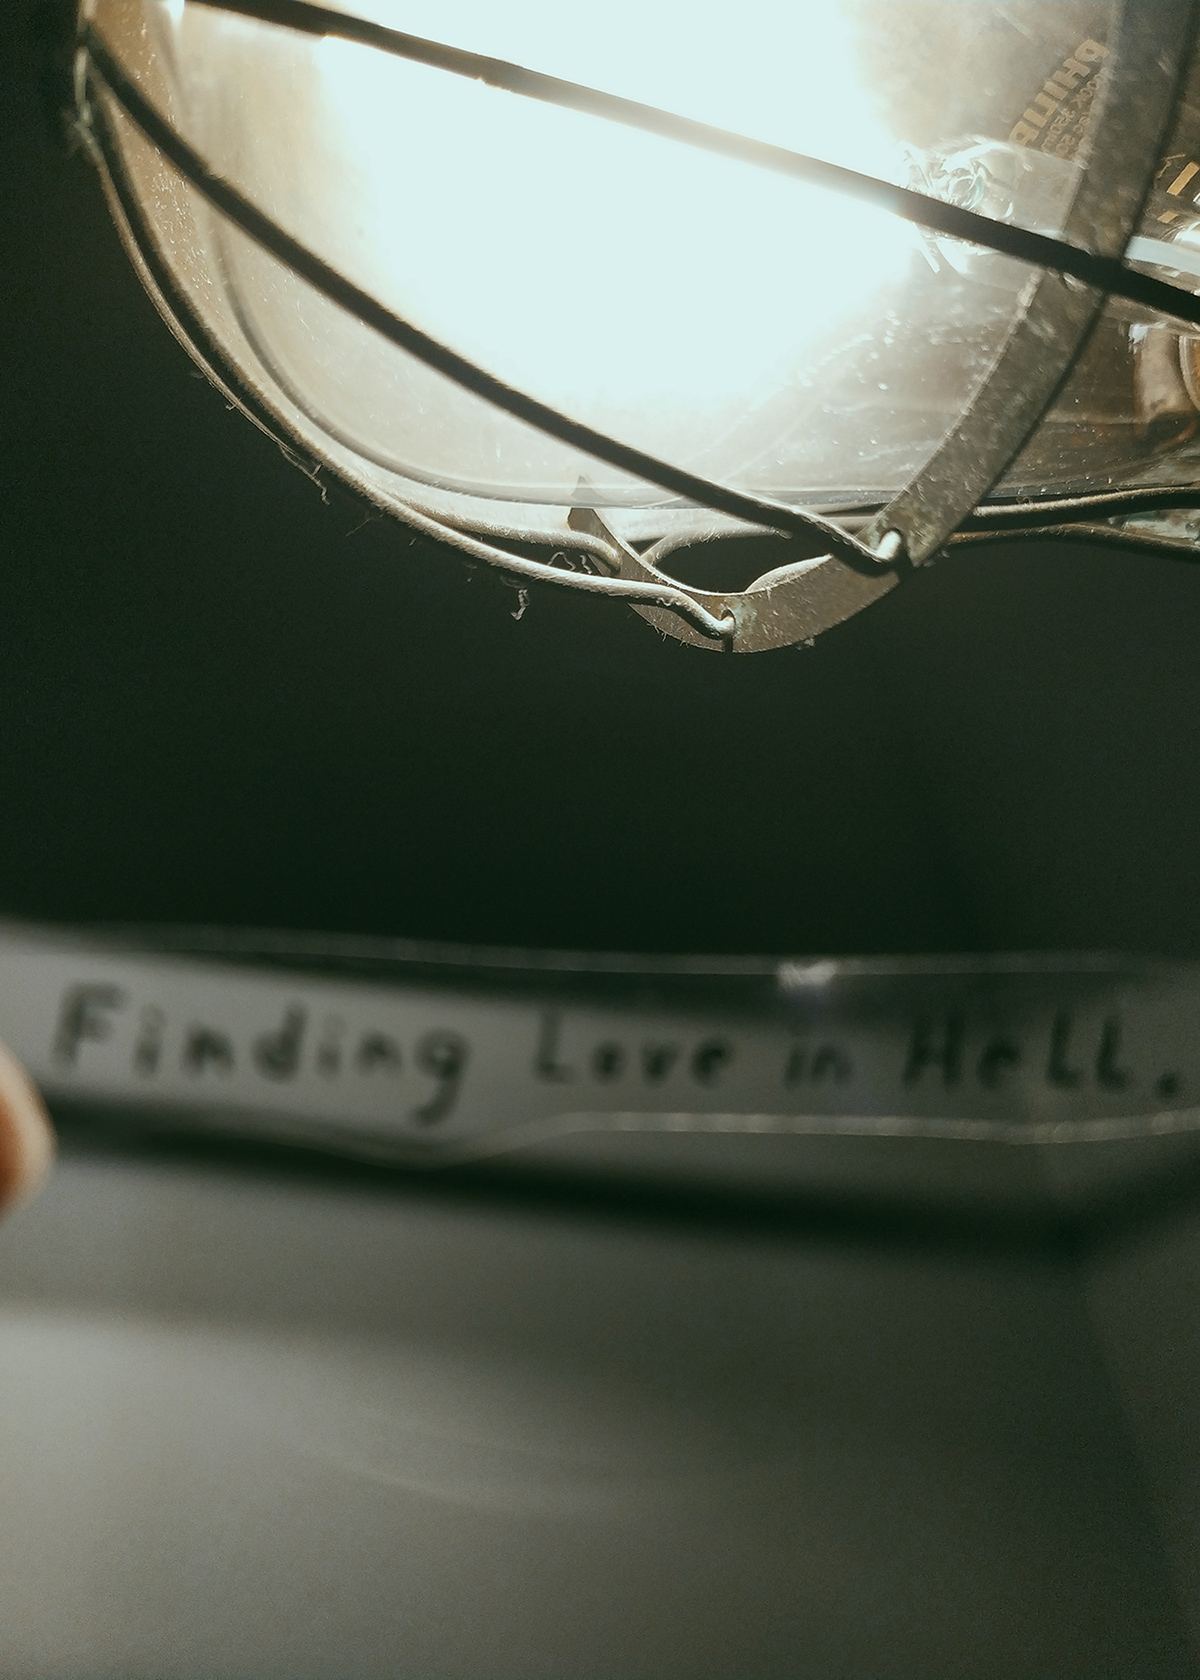 PHILIPS
Finding Love in Hell.